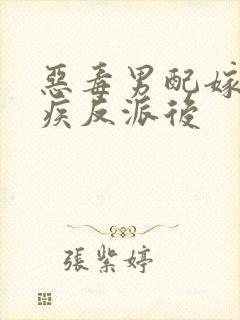 惡毒男配嫁
疾反派後
張紫婷